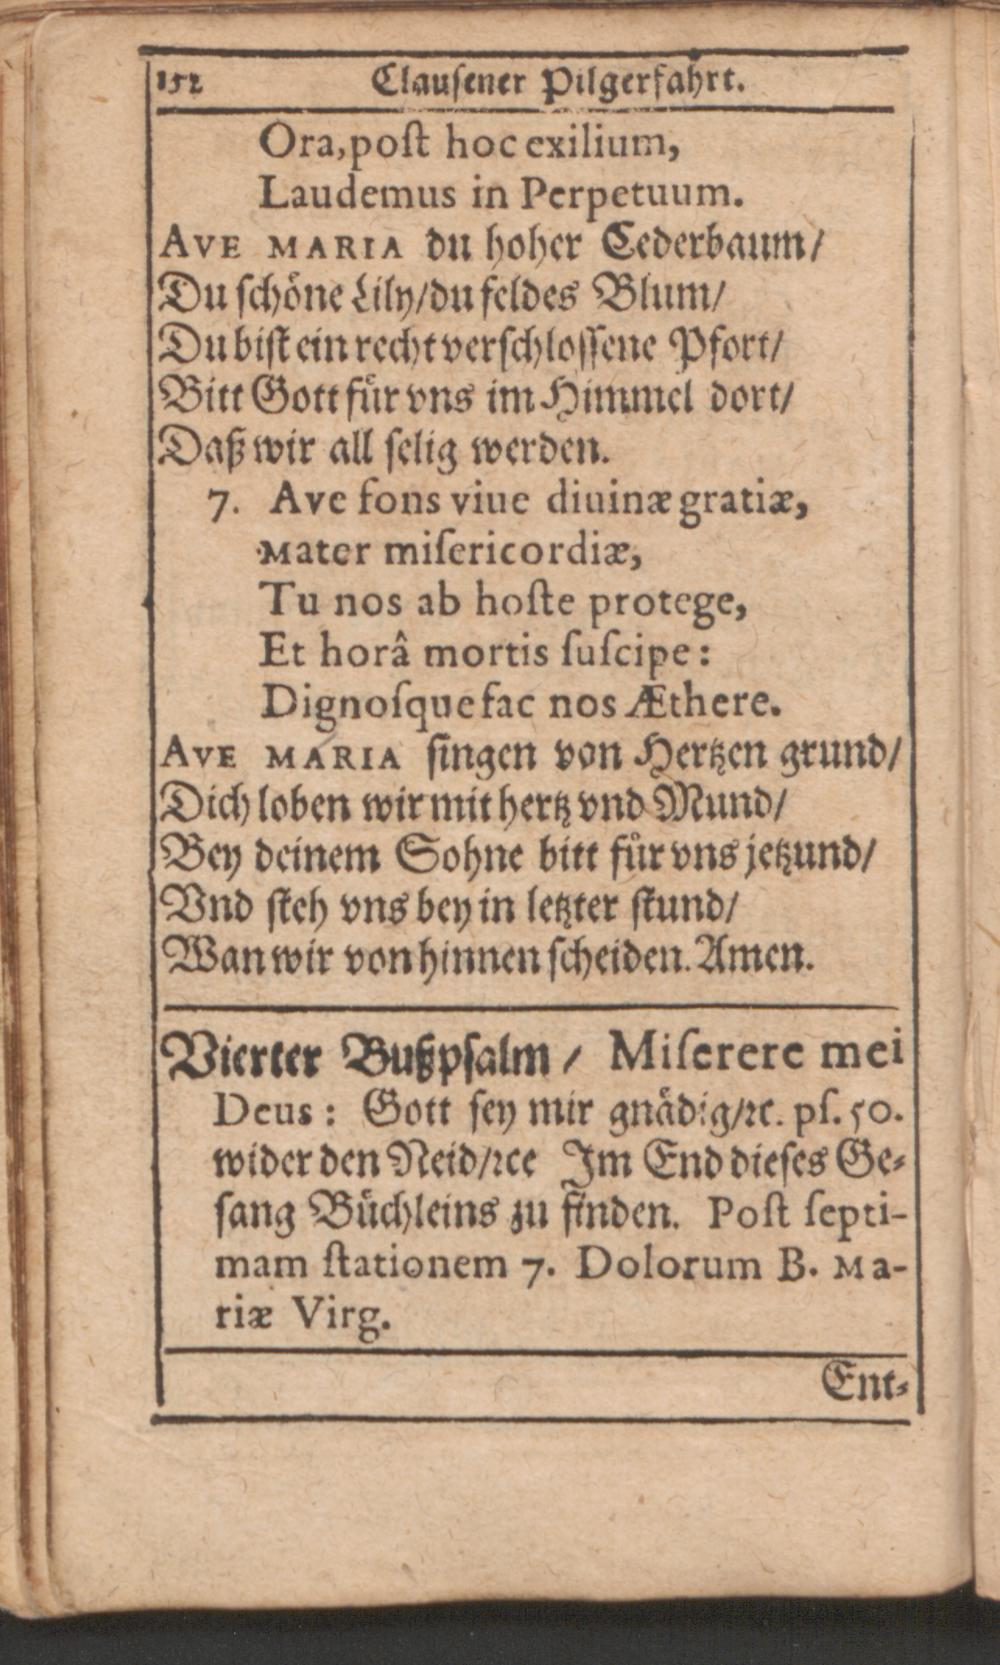 152 Clauſener Pilgerfahrt.
Ora, poſt hoc exilium,
Laudemus in Perpetuum.
AVE MARIA du hoher Cederbaum/
Du ſchöne Lily/du feldes Blum/
Du biſt ein recht verſchloſſene Pfort/
Bitt Gott fuͤr vns im Himmel dort/
Daß wir all ſelig werden.
7. Ave fons viue diuinæ gratiæ,
Mater miſericordiæ,
Tu nos ab hoſte protege,
Et horâ mortis ſuſcipe:
Dignoſque fac nos Æthere.
AVE MARIA ſingen von Hertzen grund/
Dich loben wir mit hertz vnd Mund/
Bey deinem Sohne bitt fuͤr vns jetzund/
Vnd ſteh vns bey in letzter ſtund/
Wan wir von hinnen ſcheiden. Amen.
Vierter Bußpſalm / Miſerere mei
Deus: Gott ſey mir gnädig/ꝛc. pſ. 50.
wider den Neid/ꝛce Im End dieſes Ge-
ſang Büchleins zu finden. Poſt ſepti-
mam ſtationem 7. Dolorum B. Ma-
riæ Virg.
Ent-